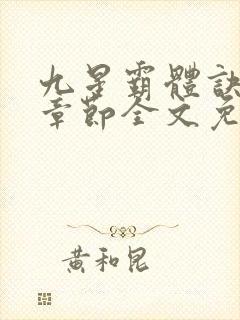 九星霸體訣
章節全文免
黃和昆